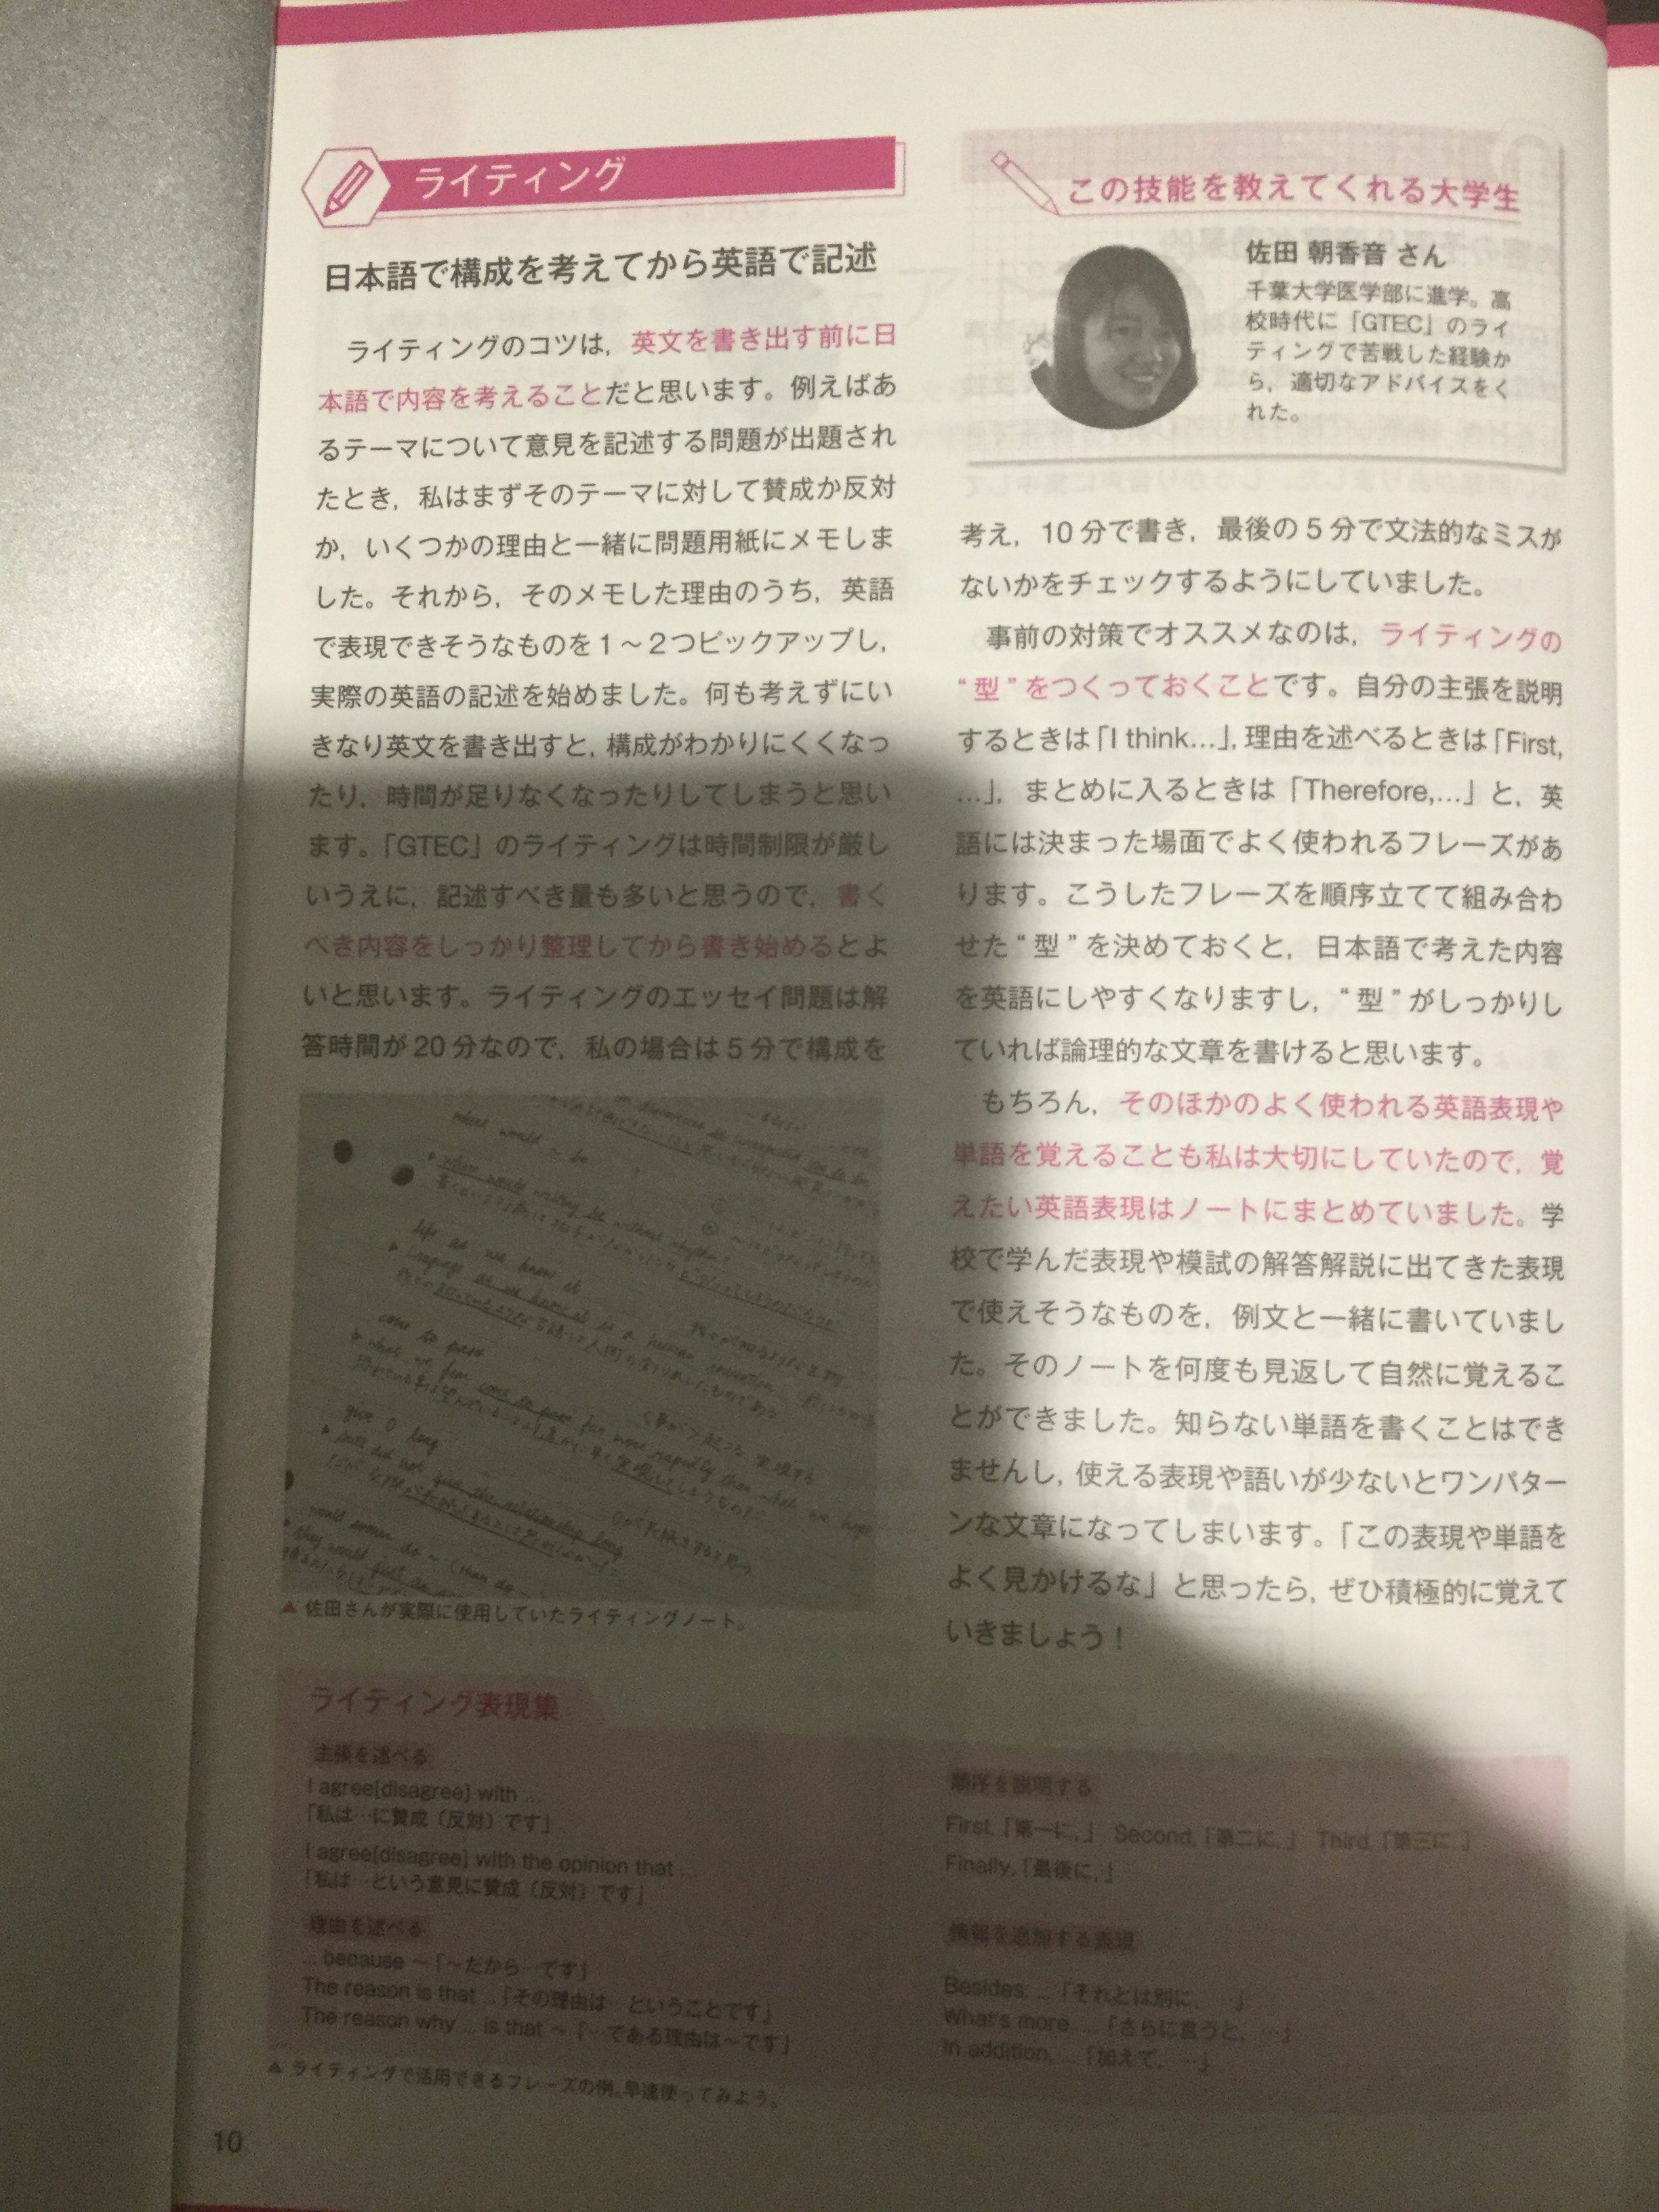 ライティング
日本語で構成を考えてから英語で記述
ライティングのコツは，英文を書き出す前に日
本語で内容を考えることだと思います。例えばあ
るテーマについて意見を記述する問題が出題され
たとき，私はまずそのテーマに対して賛成か反対
か，いくつかの理由と一緒に問題用紙にメモしま
した。それから，そのメモした理由のうち，英語
で表現できそうなものを１～２つピックアップし，
実際の英語の記述を始めました。何も考えずにい
きなり英文を書き出すと，構成がわかりにくくなっ
たり，時間が足りなくなったりしてしまうと思い
ます。「GTEC」のライティングは時間制限が厳し
いうえに，記述すべき量も多いと思うので，書く
べき内容をしっかり整理してから書き始めるとよ
いと思います。ライティングのエッセイ問題は解
答時間が20分なので，私の場合は５分で構成を
what would ~ be
life as we know it
come to pass
give O long
▲ 佐田さんが実際に使用していたライティングノート。
この技能を教えてくれる大学生
佐田 朝香音 さん
千葉大学医学部に進学。高
校時代に「GTEC」のライ
ティングで苦戦した経験か
ら，適切なアドバイスをく
れた。
考え，10分で書き，最後の５分で文法的なミスが
ないかをチェックするようにしていました。
事前の対策でオススメなのは，ライティングの
“型”をつくっておくことです。自分の主張を説明
するときは「I think…」，理由を述べるときは「First,
…」，まとめに入るときは「Therefore,…」と，英
語には決まった場面でよく使われるフレーズがあ
ります。こうしたフレーズを順序立てて組み合わ
せた“型”を決めておくと，日本語で考えた内容
を英語にしやすくなりますし，“型”がしっかりし
ていれば論理的な文章を書けると思います。
もちろん，そのほかのよく使われる英語表現や
単語を覚えることも私は大切にしていたので，覚
えたい英語表現はノートにまとめていました。学
校で学んだ表現や模試の解答解説に出てきた表現
で使えそうなものを，例文と一緒に書いていまし
た。そのノートを何度も見返して自然に覚えるこ
とができました。知らない単語を書くことはでき
ませんし，使える表現や語いが少ないとワンパター
ンな文章になってしまいます。「この表現や単語を
よく見かけるな」と思ったら，ぜひ積極的に覚えて
いきましょう！
ライティング表現集
主張を述べる
I agree[disagree] with …
「私は…に賛成〔反対〕です」
I agree[disagree] with the opinion that …
「私は…という意見に賛成〔反対〕です」
理由を述べる
… because ～「～だから…です」
The reason is that …「その理由は…ということです」
The reason why … is that ～「…である理由は～です」
順序を説明する
First,「第一に，」 Second,「第二に，」 Third,「第三に，」
Finally,「最後に，」
情報を追加する表現
Besides, …「それとは別に，…」
What's more, …「さらに言うと，…」
In addition, …「加えて，…」
▲ ライティングで活用できるフレーズの例。早速使ってみよう。
10